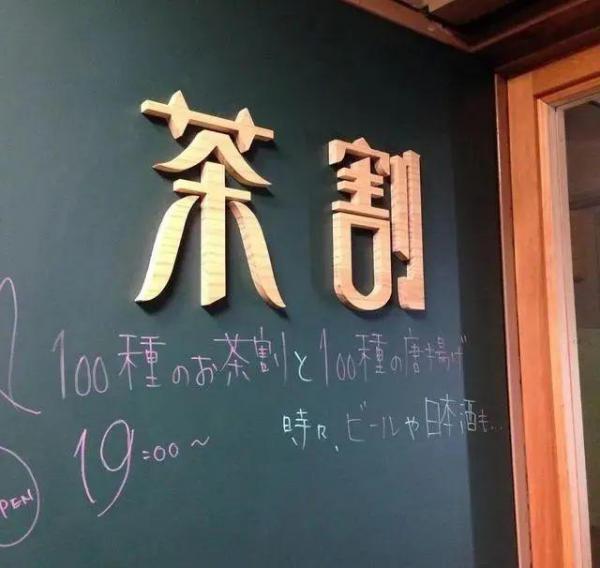 茶割
100種のお茶割と100種の唐揚げ
時々、ビールや日本酒も...
19:00～
OPEN